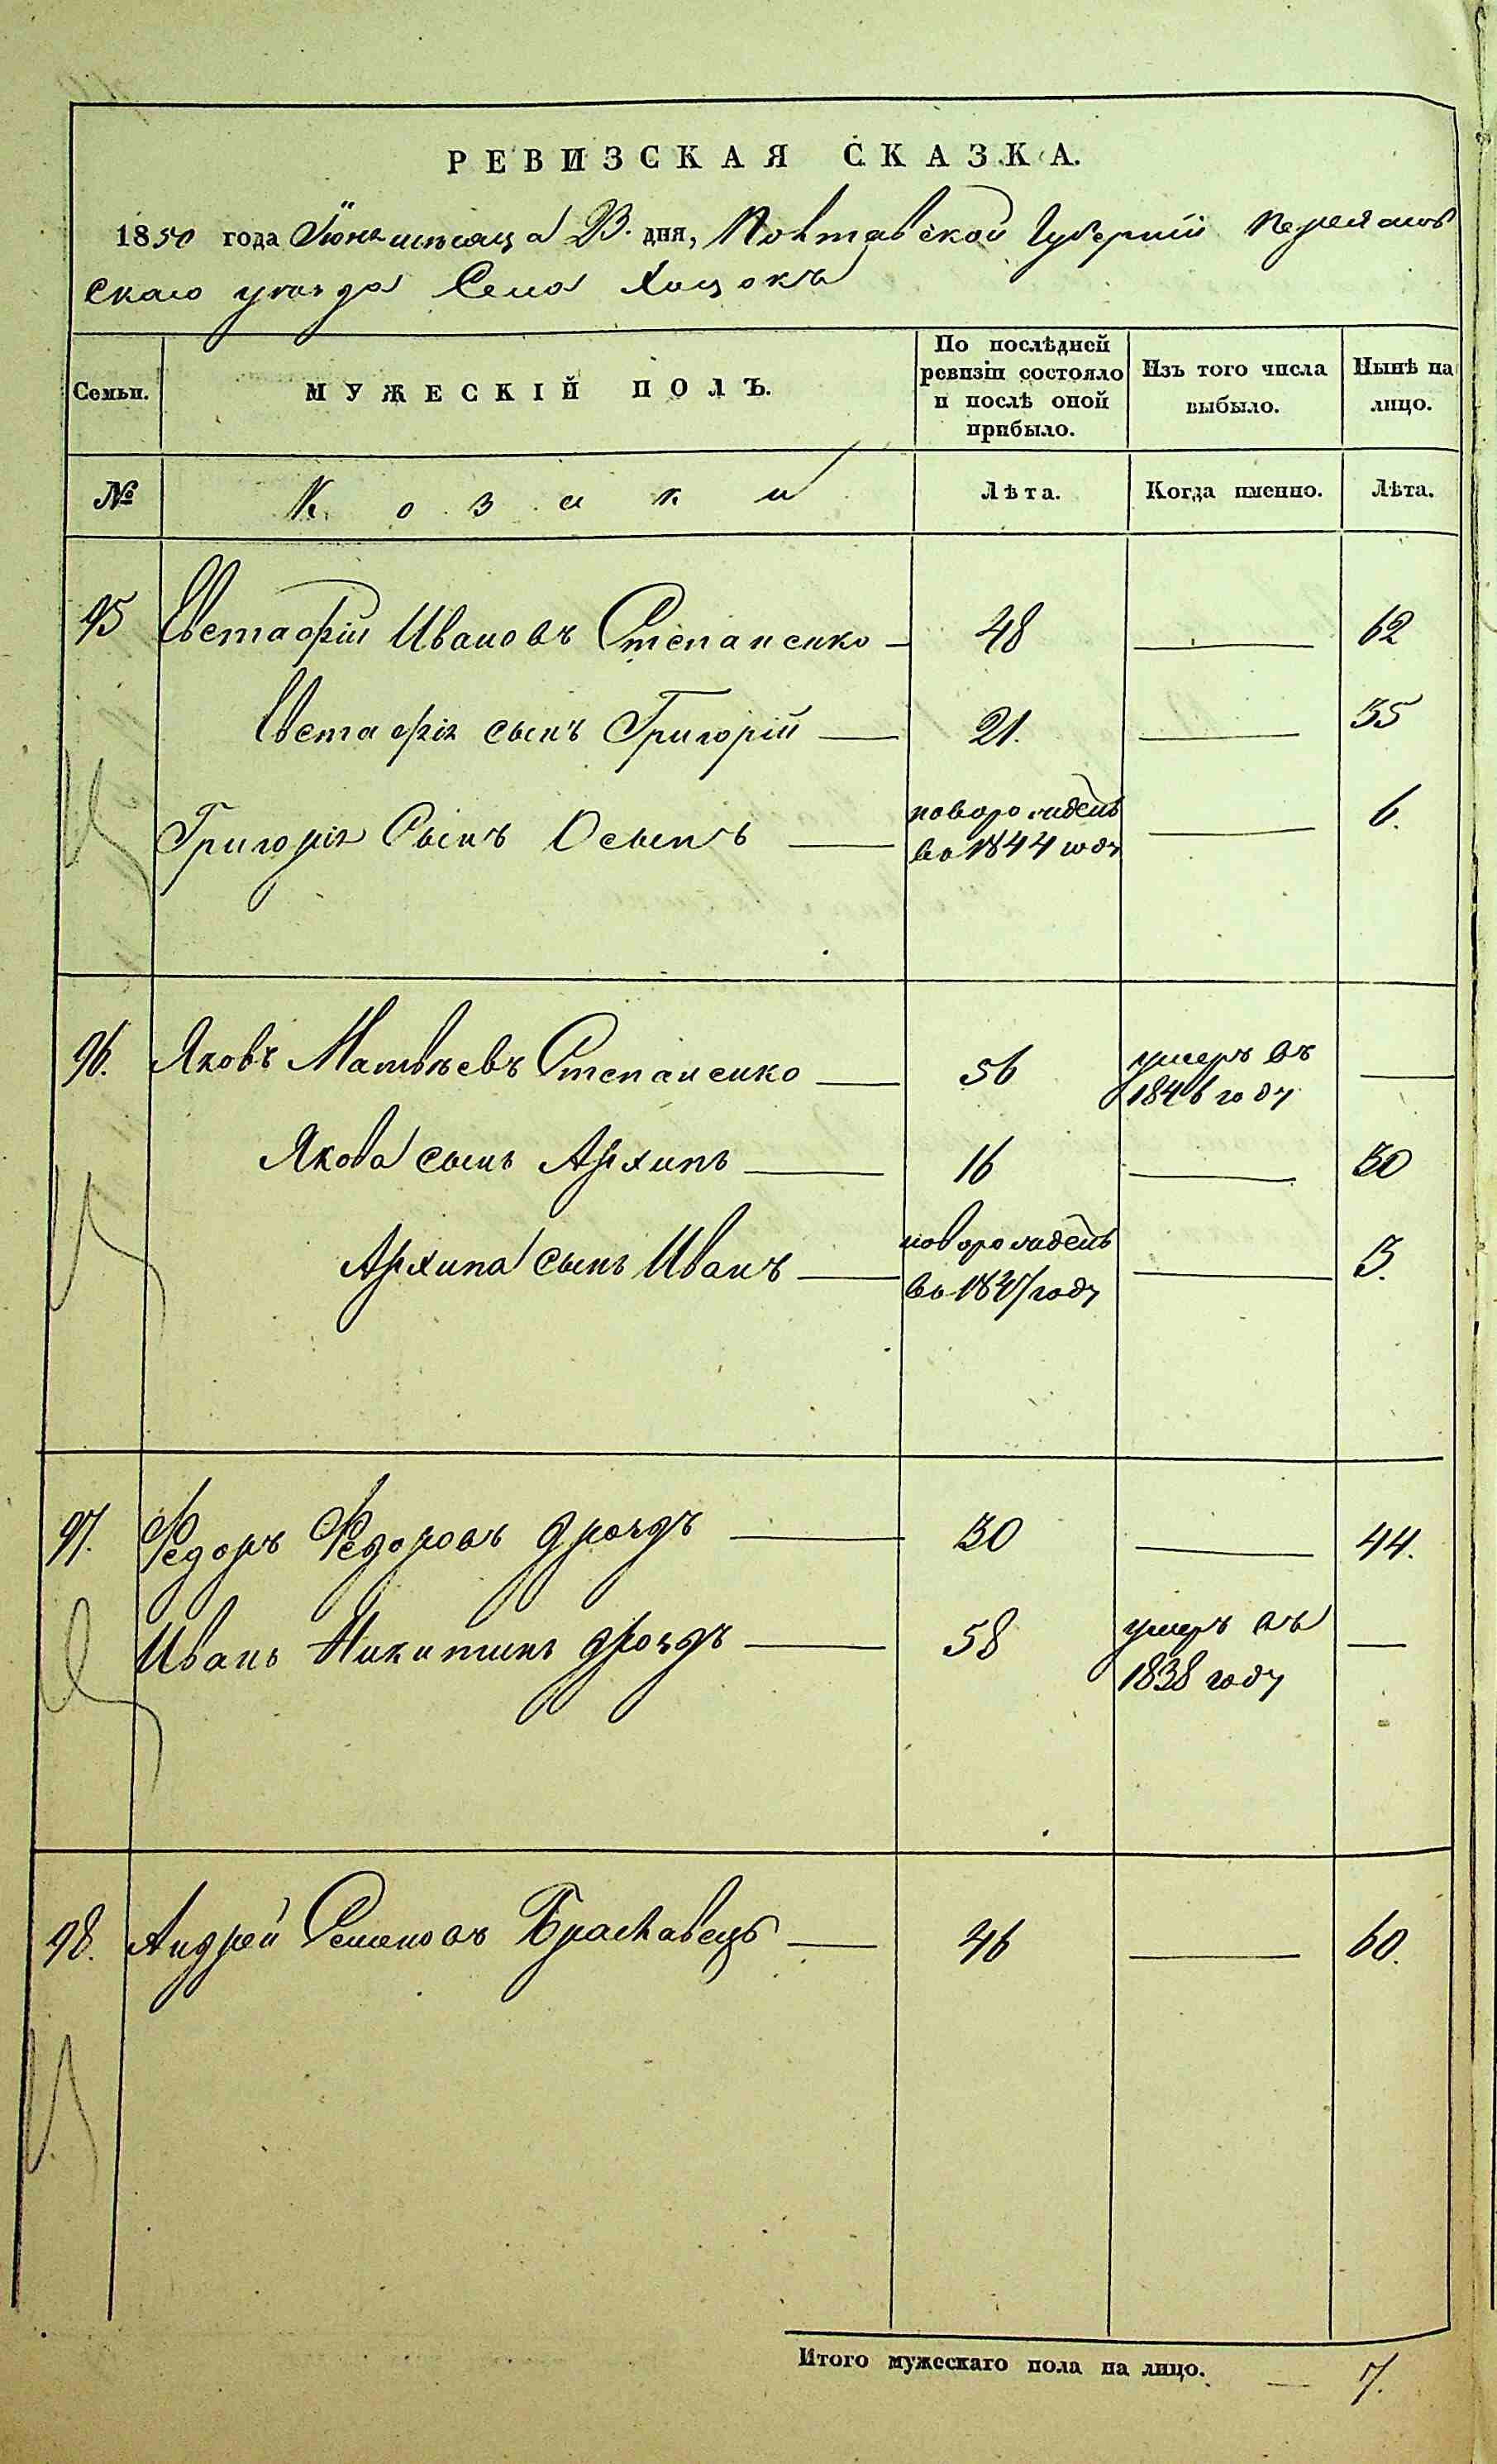 РЕВИЗСКАЯ СКАЗКА.
1850 года Іюня мѣсяца 23. дня, Полтавской Губерніи Переяслов
скаго уѣзда Села Хоцокъ
Семьи.
МУЖЕСКІЙ ПОЛЪ.
По послѣдней ревизіи состояло и послѣ оной прибыло.
Изъ того числа выбыло.
Нынѣ на лицо.
№ Козаки Лѣта. Когда именно. Лѣта.
95 Евстафій Ивановъ Степаненко — 48 — 62
Евстафія сынъ Григорій — 21. — 35
Григорія Сынъ Осыпъ — новорожденъ во 1844 году — 6.
96. Яковъ Матвѣевъ Степаненко — 56 умеръ въ 1846 году —
Якова сынъ Архипъ — 16 — 30
Архипа сынъ Иванъ — новорожденъ во 1847 году — 3.
97. Федоръ Федоровъ Дроздъ — 30 — 44.
Иванъ Никитинъ Дроздъ — 58 умеръ въ 1838 году —
98. Андрей Семеновъ Браславецъ — 46 — 60.
Итого мужескаго пола на лицо. — 7.